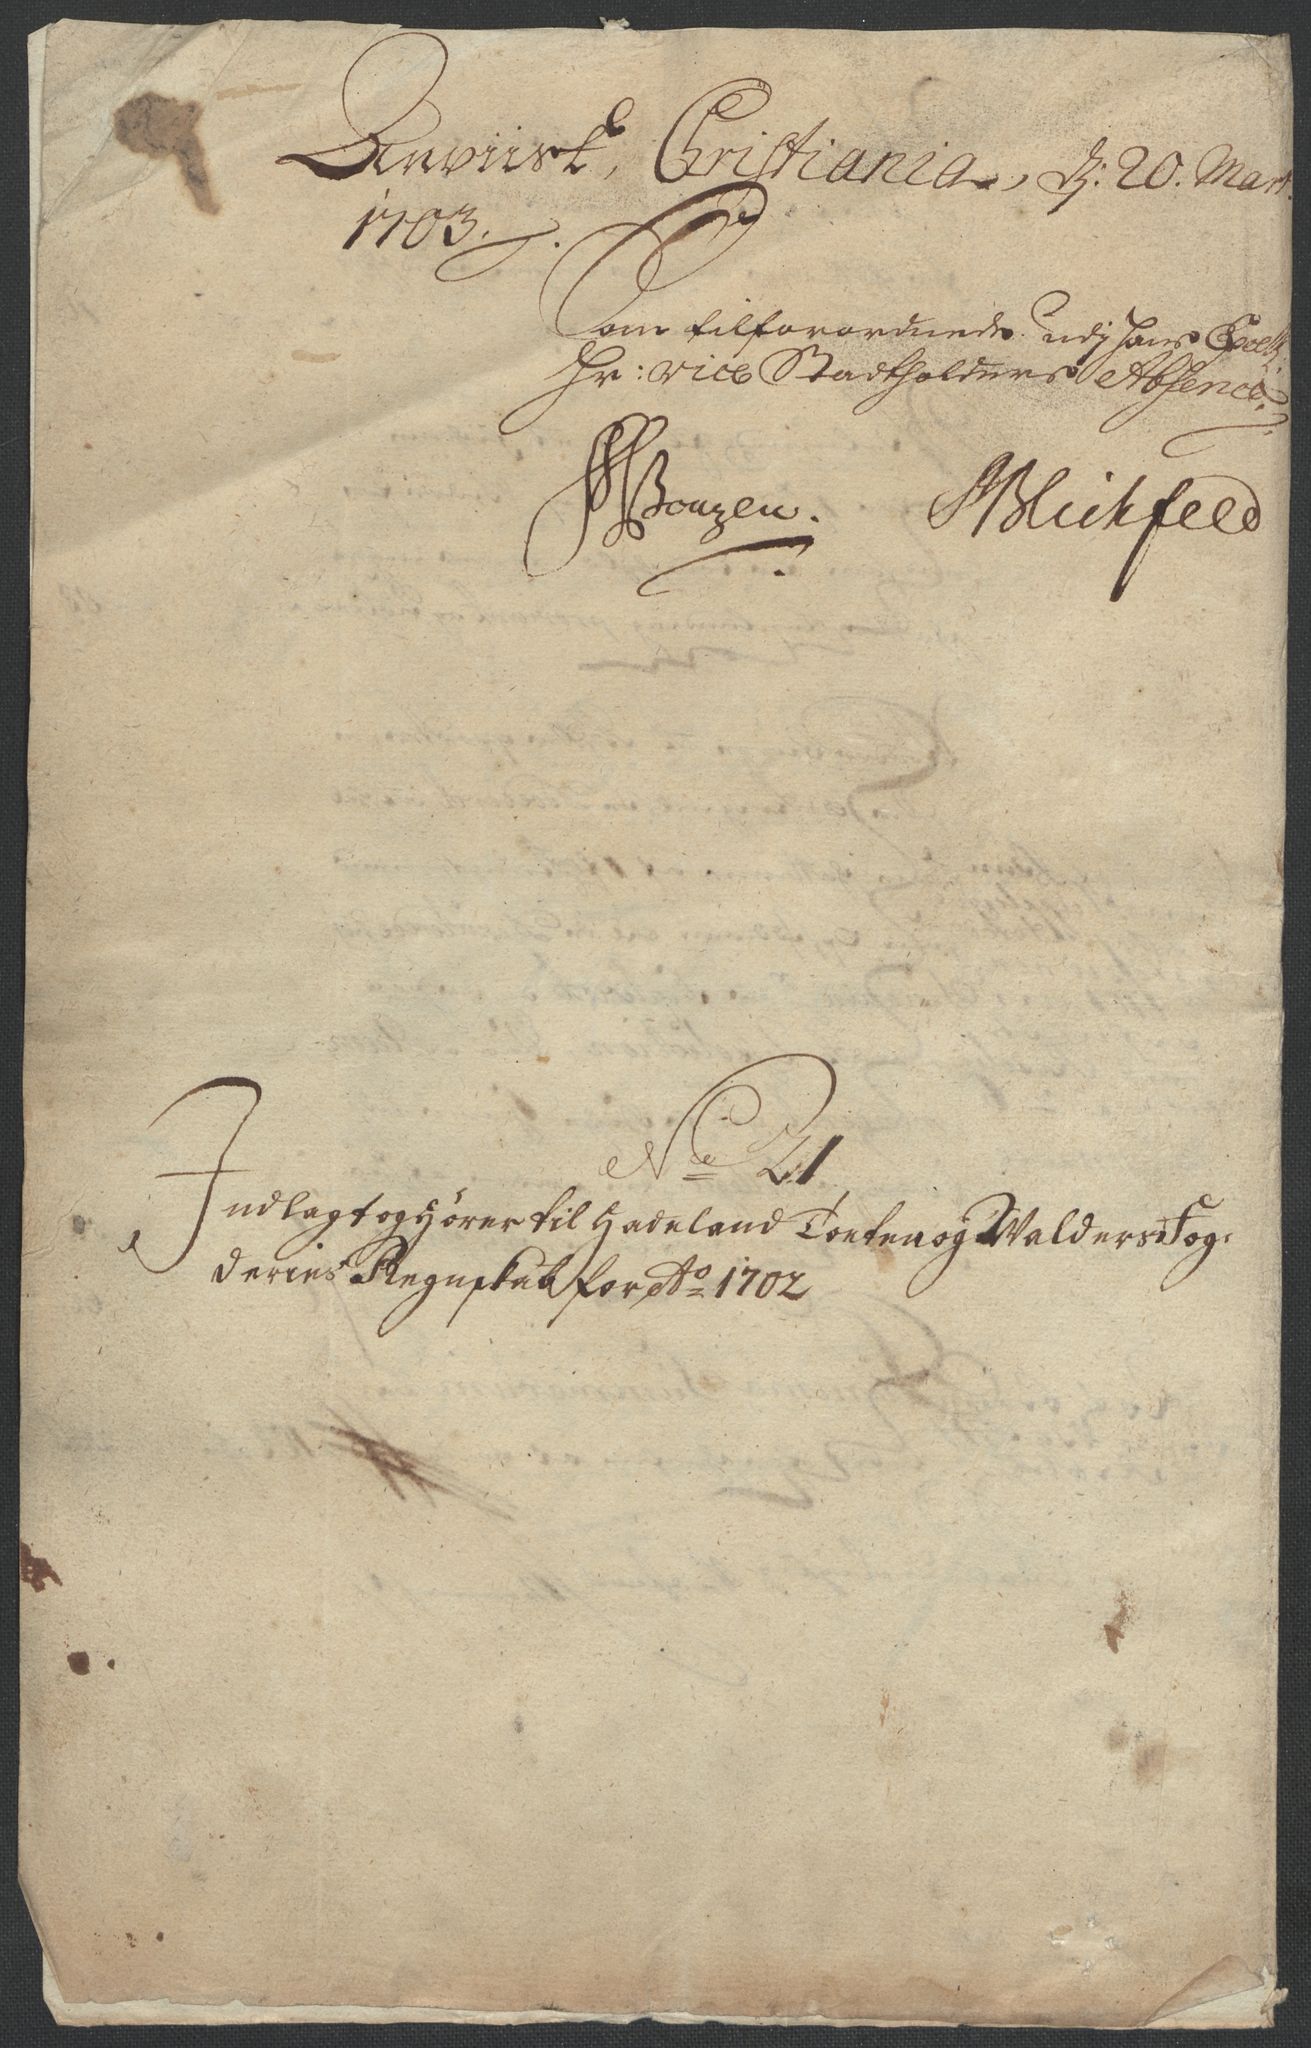 Anviist, Christiania, d: 20. Mart:
1703.
Som tilforordnede udj hans Excell:
Hr: Vice Stadtholders Absence.
Bouzen. Blichfeld
No 21
Indlagt og hører til Hadeland Toeten og Walders Fog-
deries Regnskab for Ao 1702